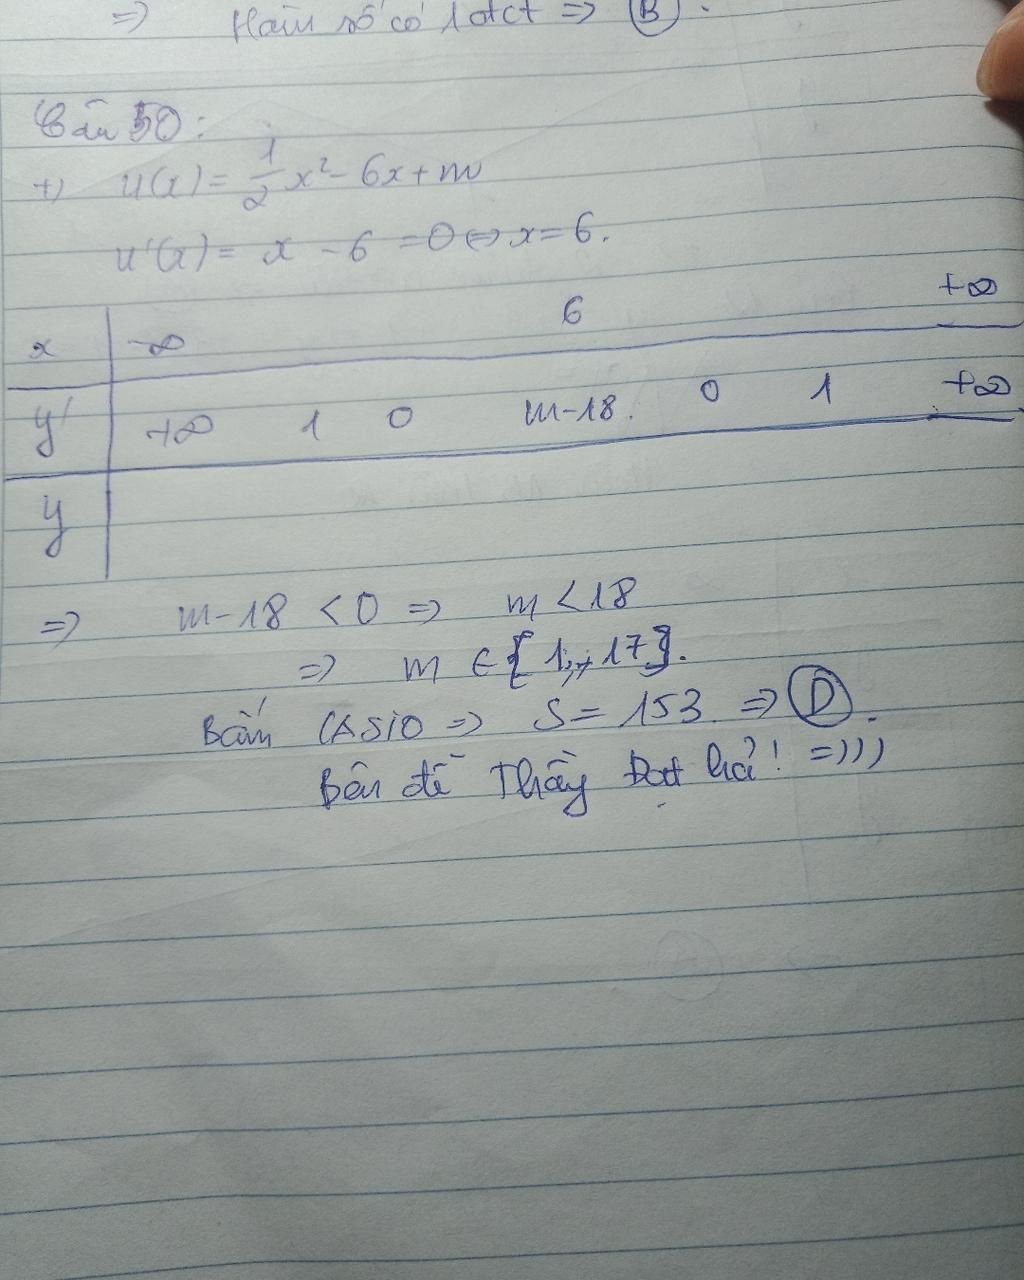 ⇒ Hàm số có 1 đtct ⇒ (B).
Câu 50:
+) u(x) = 1/2 x² - 6x + m
u'(x) = x - 6 = 0 ⇔ x = 6.
x -∞ 6 +∞
y' +∞ 1 0 m-18. 0 1 +∞
y
⇒ m-18 < 0 ⇒ m < 18
⇒ m ∈ {1;,, 17}.
Bấm CASIO ⇒ S = 153. ⇒ (D).
Bên đề Thầy Đạt hả! =)))